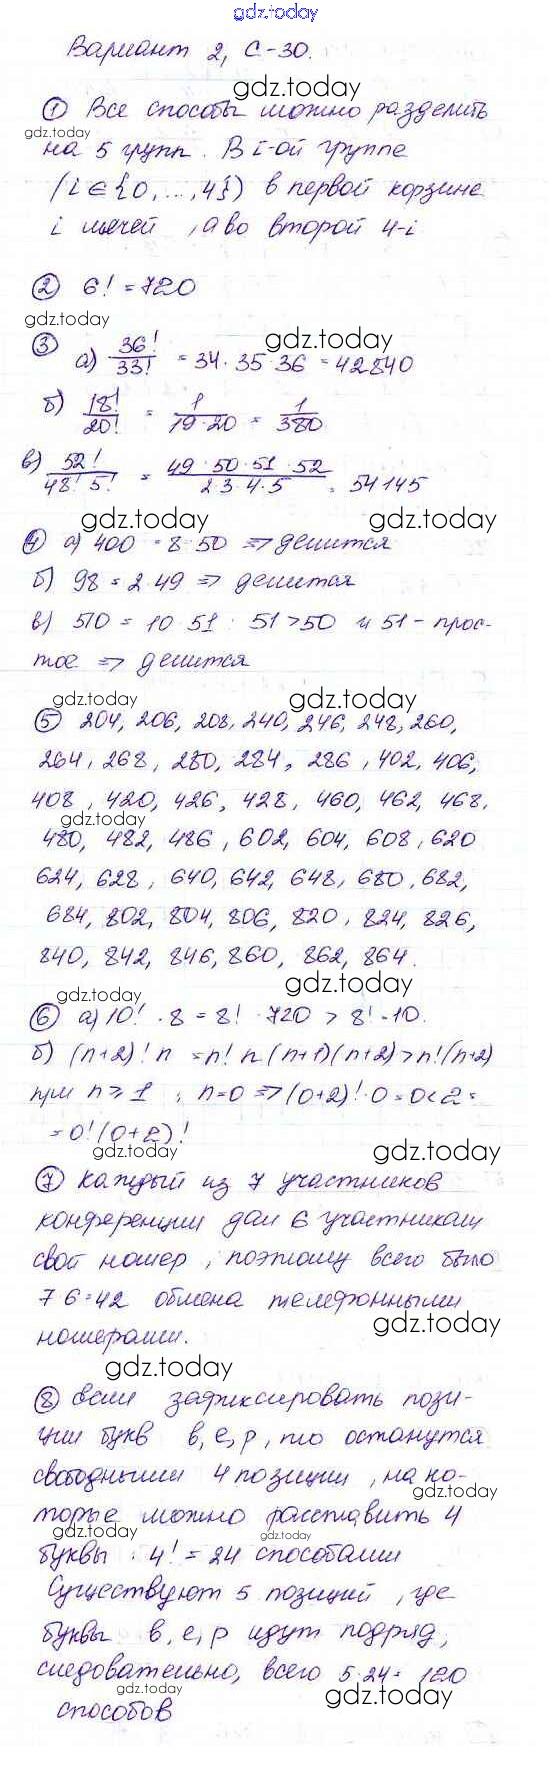 gdz.today
Вариант 2, С-30.
gdz.today
① Все способы можно разделить
gdz.today
на 5 групп. В i-ой группе
(i ∈ {0, ..., 4}) в первой корзине
i мячей, а во второй 4-i
② 6! = 720
gdz.today
gdz.today
③ а) 36!/33! = 34 · 35 · 36 = 42840
б) 18!/20! = 1/(19 · 20) = 1/380
в) 52!/(48! 5!) = (49 · 50 · 51 · 52)/(2 · 3 · 4 · 5) = 54145
gdz.today gdz.today
④ а) 400 = 8 · 50 => делится
б) 98 = 2 · 49 => делится
в) 510 = 10 · 51 · 51 > 50 и 51 - прос-
тое => делится
gdz.today gdz.today
⑤ 204, 206, 208, 240, 246, 248, 260,
264, 268, 280, 284, 286, 402, 406,
408, 420, 426, 428, 460, 462, 468,
gdz.today
480, 482, 486, 602, 604, 608, 620
624, 628, 640, 642, 648, 680, 682,
684, 802, 804, 806, 820, 824, 826,
840, 842, 846, 860, 862, 864.
gdz.today gdz.today
⑥ а) 10! · 8 = 8! · 720 > 8! · 10.
б) (n+2)! n = n! n (n+1)(n+2) > n! (n+2)
при n ⩾ 1 ; n=0 => (0+2)! · 0 = 0 < 2 =
= 0! (0+2)!
gdz.today
⑦ Каждый из 7 участников
конференции дал 6 участникам
свой номер, поэтому всего было
7 · 6 = 42 обмена телефонными
gdz.today
номерами.
gdz.today
⑧ Если зафиксировать пози-
ции букв в, е, р, то останутся
свободными 4 позиции, на ко-
gdz.today
торые можно расставить 4
gdz.today gdz.today
буквы 4! = 24 способами
Существуют 5 позиций, где
буквы в, е, р идут подряд,
следовательно, всего 5 · 24 = 120
gdz.today
способов